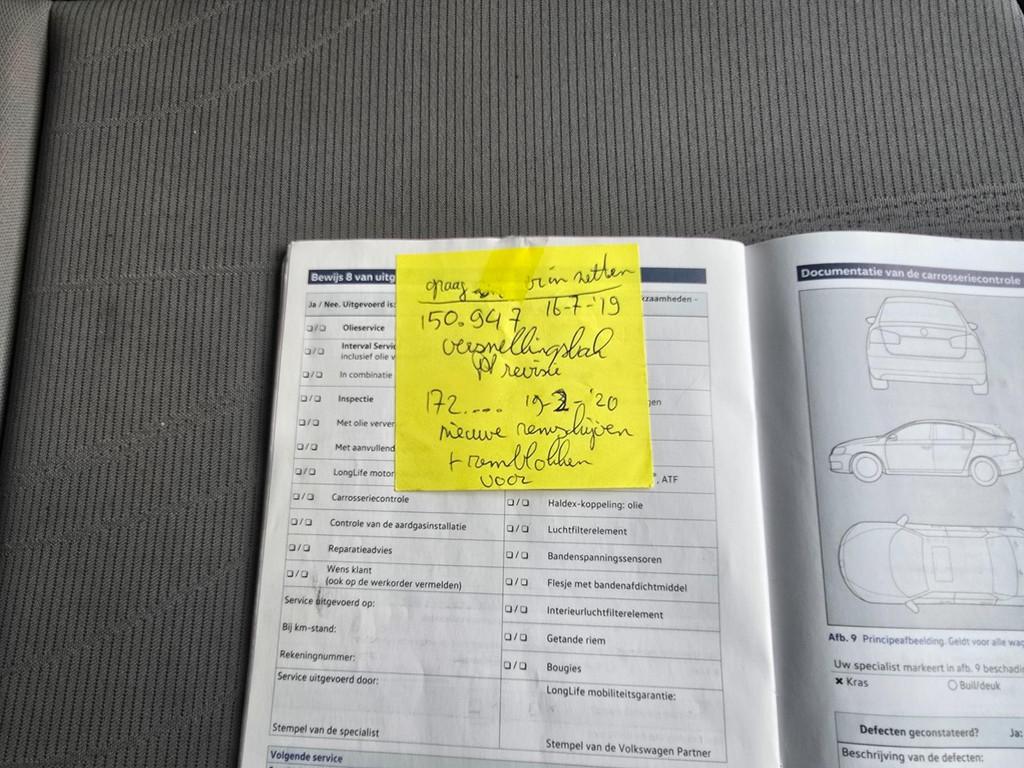 Bewijs 8 van uitg
Ja / Nee. Uitgevoerd is:
kzaamheden -
❑/❑ Olieservice
❑/❑ Interval Servi
inclusief olie v
❑/❑ In combinatie
❑/❑ Inspectie
❑/❑ Met olie verver
❑/❑ Met aanvullend
❑/❑ LongLife motor
❑/❑ Carrosseriecontrole
❑/❑ Controle van de aardgasinstallatie
❑/❑ Reparatieadvies
❑/❑ Wens klant
(ook op de werkorder vermelden)
Service uitgevoerd op:
Bij km-stand:
Rekeningnummer:
Service uitgevoerd door:
Stempel van de specialist
Volgende service
graag er in zetten
150.947 16-7-'19
versnellingsbak
revisie
172.... 19-2-'20
nieuwe remschijven
+ remblokken
voor
gen
, ATF
❑/❑ Haldex-koppeling: olie
❑/❑ Luchtfilterelement
❑/❑ Bandenspanningssensoren
❑/❑ Flesje met bandenafdichtmiddel
❑/❑ Interieurluchtfilterelement
❑/❑ Getande riem
❑/❑ Bougies
LongLife mobiliteitsgarantie:
Stempel van de Volkswagen Partner
Documentatie van de carrosseriecontrole
Afb. 9 Principeafbeelding. Geldt voor alle wag
Uw specialist markeert in afb. 9 beschadi
✖ Kras ○ Buil/deuk
Defecten geconstateerd? Ja:
Beschrijving van de defecten: